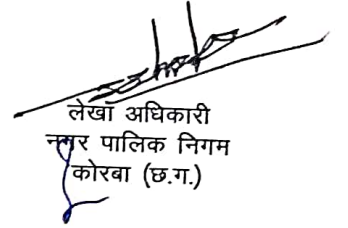 लेखा अधिकारी
नगर पालिक निगम
कोरबा (छ.ग.)